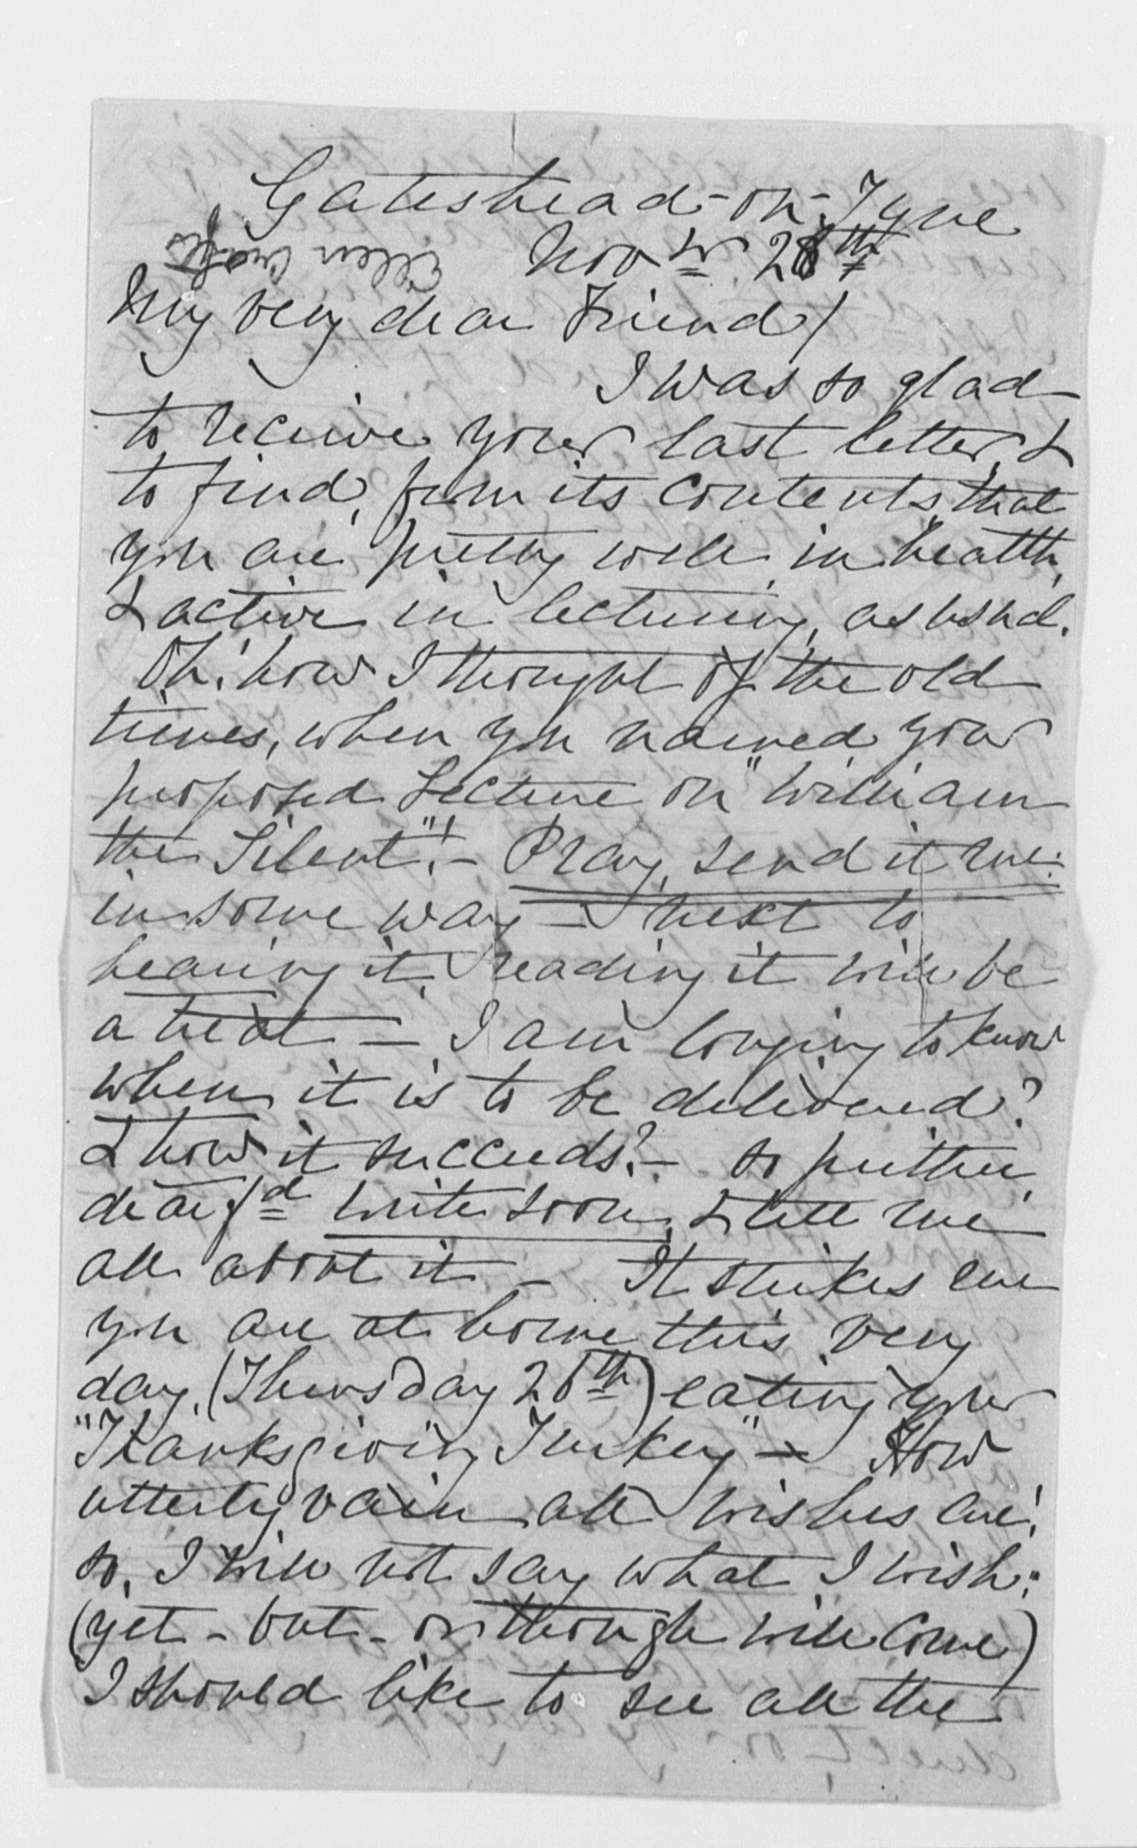 Gateshead-on-Tyne
Novr 28th
Ellen Crafts
My very dear Friend/
I was so glad
to receive your last letter, &
to find, from its contents, that
you are pretty well in health,
& active in lecturing, as usual.
Oh! how I thought of the old
times, when you named your
proposed Lecture on "William
the Silent"! - Pray, send it me:
in some way - next to
hearing it, reading it will be
a treat - I am longing to know
when it is to be delivered?
& how it succeeds? - so prithee,
dear fd write soon, & tell me
all about it - It strikes me
you are at home this very
day, (Thursday 28th) eating your
"Thanksgiving Turkey" - How
utterly vain all wishes are!
so, I will not say what I wish:
(yet - but - or though will come)
I should like to see all the